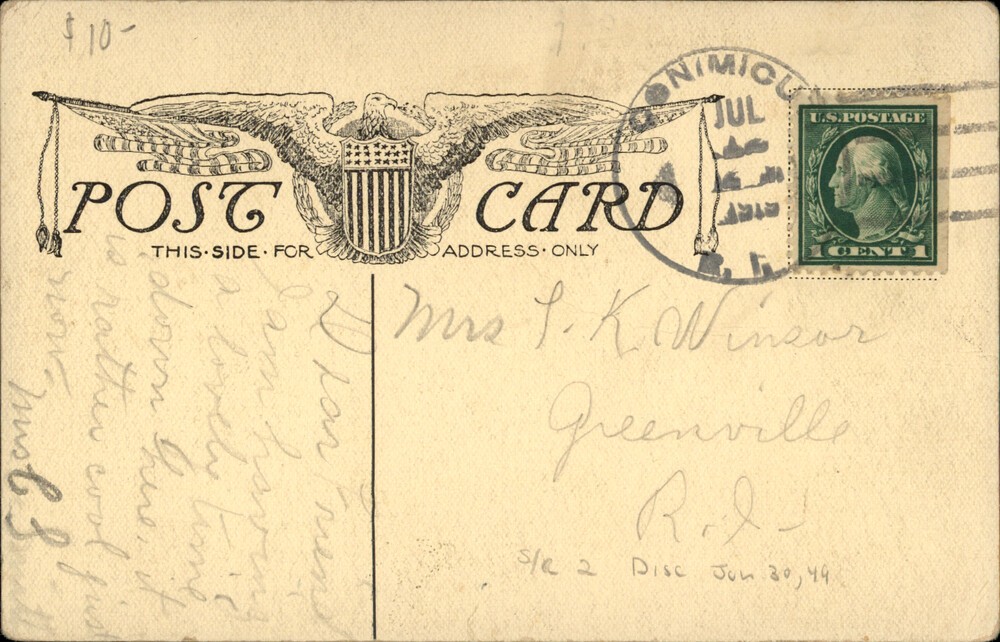 $10-
POST CARD
THIS·SIDE·FOR ADDRESS·ONLY
CONIMICUT
JUL
1919
R. I.
U.S. POSTAGE
1 CENT 1
Mrs S. K. Winsor
Greenville
R.I.
S/R 2 Disc Jun 30, 49
Dear Friend
I am having
a lovely time
down here, it
is rather cool just
now.
Mrs C S